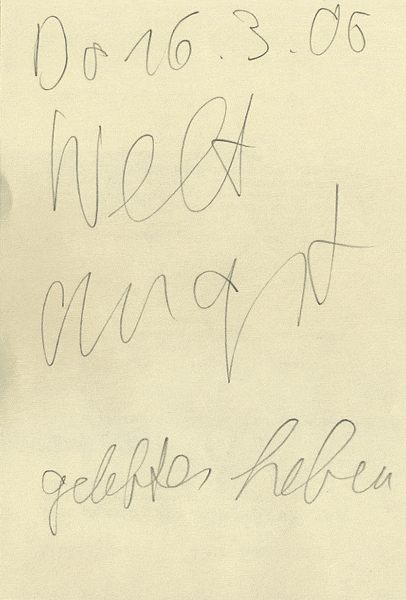 Do 16.3.06
Welt
angst
gelebtes Leben